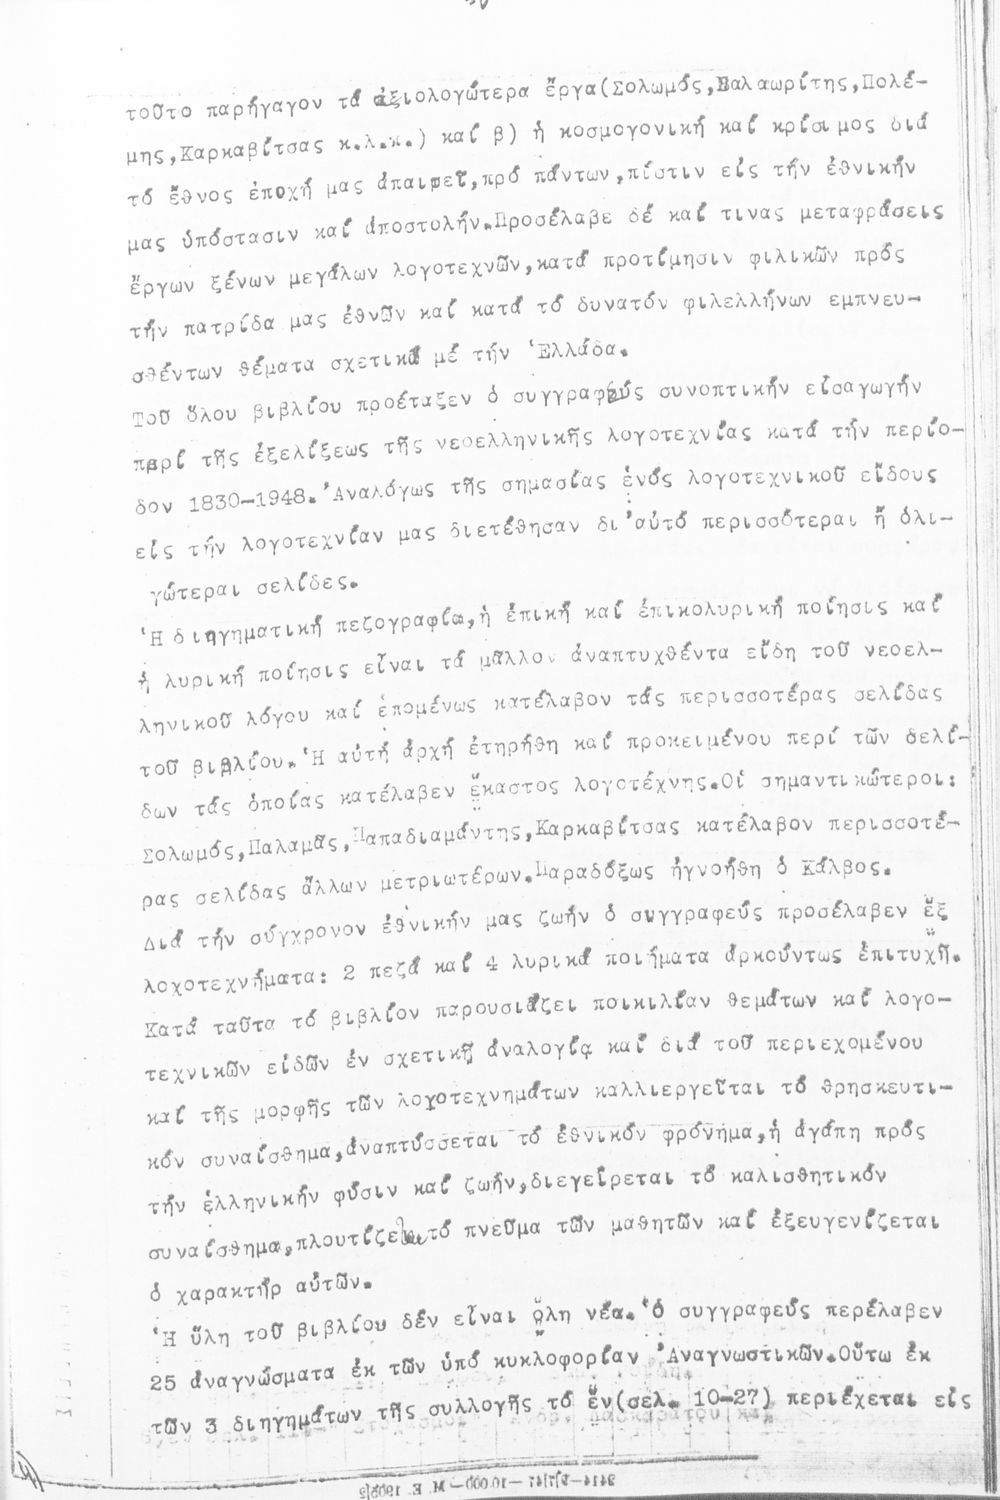 τοῦτο παρήγαγον τά ἀξιολογώτερα ἔργα(Σολωμός,Βαλαωρίτης,Πολέ-
μης,Καρκαβίτσας κ.λ.π.) καί β) ἡ κοσμογονική καί κρίσιμος διά
τό ἔθνος ἐποχή μας ἀπαιτεῖ,πρό πάντων,πίστιν εἰς τήν ἐθνικήν
μας ὑπόστασιν καί ἀποστολήν.Προσέλαβε δέ καί τινας μεταφράσεις
ἔργων ξένων μεγάλων λογοτεχνῶν,κατά προτίμησιν φιλικῶν πρός
τήν πατρίδα μας ἐθνῶν καί κατά τό δυνατόν φιλελλήνων εμπνευ-
σθέντων θέματα σχετικά μέ τήν Ἑλλάδα.
Τοῦ ὅλου βιβλίου προέταξεν ὁ συγγραφεύς συνοπτικήν εἰσαγωγήν
περί τῆς ἐξελίξεως τῆς νεοελληνικῆς λογοτεχνίας κατά τήν περίο-
δον 1830-1948.Ἀναλόγως τῆς σημασίας ἑνός λογοτεχνικοῦ εἴδους
εἰς τήν λογοτεχνίαν μας διετέθησαν δι'αὐτό περισσότεραι ἤ ὀλι-
γώτεραι σελίδες.
Ἡ διηγηματική πεζογραφία,ἡ ἐπική καί ἐπικολυρική ποίησις καί
ἡ λυρική ποίησις εἶναι τά μᾶλλον ἀναπτυχθέντα εἴδη τοῦ νεοελ-
ληνικοῦ λόγου καί ἑπομένως κατέλαβον τάς περισσοτέρας σελίδας
τοῦ βιβλίου.Ἡ αὐτή ἀρχή ἐτηρήθη καί προκειμένου περί τῶν σελί-
δων τάς ὁποίας κατέλαβεν ἕκαστος λογοτέχνης.Οἱ σημαντικώτεροι:
Σολωμός,Παλαμᾶς,Παπαδιαμάντης,Καρκαβίτσας κατέλαβον περισσοτέ-
ρας σελίδας ἄλλων μετριωτέρων.Παραδόξως ἠγνοήθη ὁ Κάλβος.
Διά τήν σύγχρονον ἐθνικήν μας ζωήν ὁ συγγραφεύς προσέλαβεν ἕξ
λοχοτεχνήματα: 2 πεζά καί 4 λυρικά ποιήματα ἀρκούντως ἐπιτυχῆ.
Κατά ταῦτα τό βιβλίον παρουσιάζει ποικιλίαν θεμάτων καί λογο-
τεχνικῶν εἰδῶν ἐν σχετικῇ ἀναλογίᾳ καί διά τοῦ περιεχομένου
καί τῆς μορφῆς τῶν λογοτεχνημάτων καλλιεργεῖται τό θρησκευτι-
κόν συναίσθημα,ἀναπτύσσεται τό ἐθνικόν φρόνημα,ἡ ἀγάπη πρός
τήν ἑλληνικήν φύσιν καί ζωήν,διεγείρεται τό καλισθητικόν
συναίσθημα,πλουτίζεται τό πνεῦμα τῶν μαθητῶν καί ἐξευγενίζεται
ὁ χαρακτήρ αὐτῶν.
Ἡ ὕλη τοῦ βιβλίου δέν εἶναι ὅλη νέα.Ὁ συγγραφεύς περέλαβεν
25 ἀναγνώσματα ἐκ τῶν ὑπό κυκλοφορίαν Ἀναγνωστικῶν.Οὕτω ἐκ
τῶν 3 διηγημάτων τῆς συλλογῆς τό ἕν(σελ. 10-27) περιέχεται εἰς